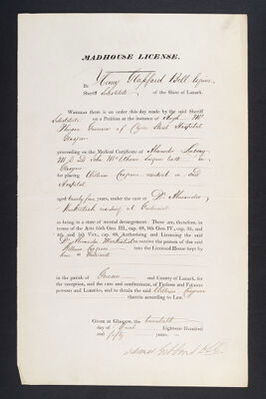 MADHOUSE LICENSE.
By Henry Glassford Bell Esquire
Sheriff Substitute of the Shire of Lanark.
WHEREAS there is an order this day made by the said Sheriff
Substitute on a Petition at the instance of
of Clyde Street Hospital
Glasgow
proceeding on the Medical Certificate of Alexander
M.D. John both in
Glasgow
for placing William resident in said
Hospital
aged twenty five years, under the care of Dr Alexander
Mackintosh residing at Gartnavel
as being in a state of mental derangement. These are, therefore, in
terms of the Acts 55th Geo. III, cap. 69, 9th Geo IV, cap. 34, and
4th and 5th Vict., cap. 60, Authorising and Licensing the said
Dr Alexander Mackintosh to receive the person of the said
William into the Licensed House kept by
him at Gartnavel
in the parish of Govan and County of Lanark, for
the reception, and the care and confinement, of Furious and Fatuous
persons and Lunatics, and to detain the said William
therein according to Law.
Given at Glasgow, the twentieth
day of Eighteen Hundred
and fifty years. —